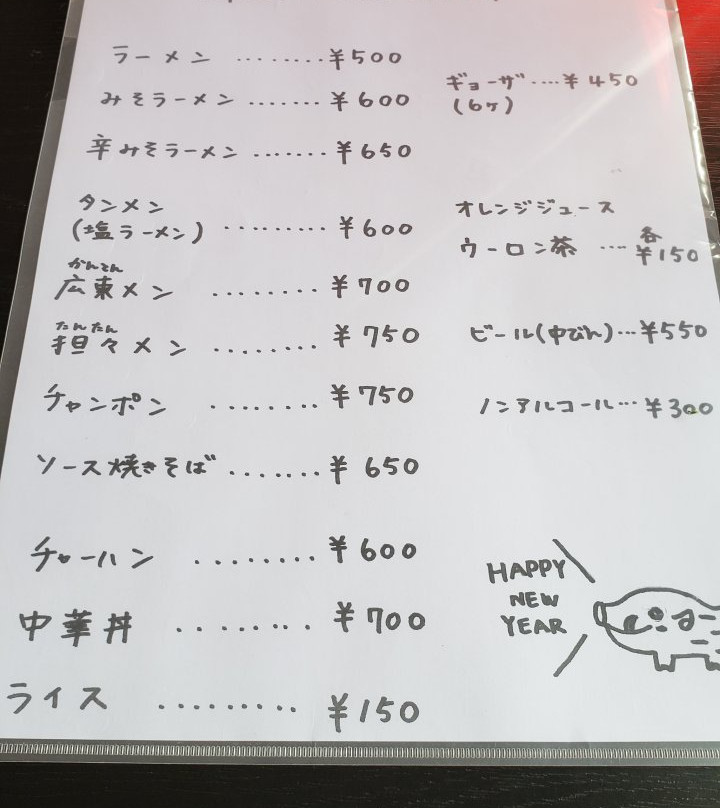 ラーメン ........ ¥500
みそラーメン ....... ¥600
辛みそラーメン ....... ¥650
タンメン
(塩ラーメン) ......... ¥600
かんとん
広東メン ........ ¥700
たんたん
担々メン ........ ¥750
チャンポン ........ ¥750
ソース焼きそば ....... ¥650
チャーハン ........ ¥600
中華丼 ........ ¥700
ライス ......... ¥150
ギョーザ .... ¥450
(6ヶ)
オレンジジュース
ウーロン茶 .... 各¥150
ビール(中びん)...¥550
ノンアルコール...¥300
HAPPY
NEW
YEAR